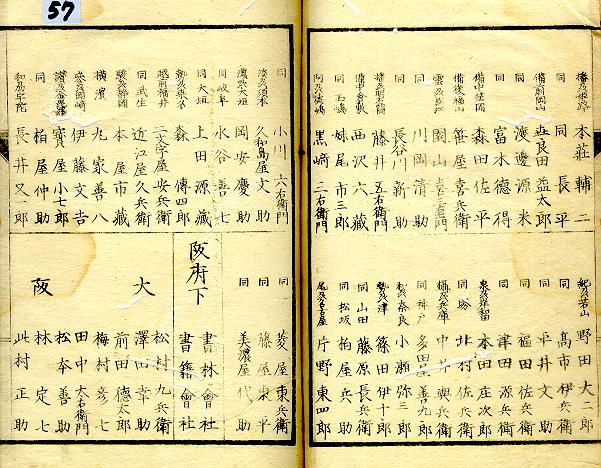 57
播州姫路 本莊輔二
同 長平
備前岡山 吉良田益太郎
同 渡邊源米
同 富木德得
備中笠岡 森田佐平
備後福山 笹屋喜兵衛
川岡清助
長谷川新助
播州明石 藤井五右衛門
備中倉敷 西沢六藏
同玉嶋 妹尾市三郎
阿州德嶋 黒﨑三右衛門
紀州若山 野田大二郎
同 高市伊兵衛
同 平井文助
同 福田佐兵衛
同 津田源兵衛
泉州岸和田 本田庄次郎
同堺 北村佐兵衛
攝州兵庫 中井興兵衛
同神戸 多田屋善九郎
和州奈良 小瀬弥三郎
勢州津 篠田伊十郎
同山田 藤原長兵衛
同松坂 柏屋兵助
尾州名古屋 片野東四郎
同 小川六右衛門
淡州須本 久和島屋文助
濃州大垣 岡安慶助
同岐阜 水谷善七
同大垣 上田源藏
勢州桑名 森傳四郎
越前福井 二文字屋安兵衛
同武生 近江屋久兵衛
駿州静岡 本屋市藏
横濱 丸家善八
參州岡崎 伊藤文吉
讃州金毘羅 寳屋小七郎
同 柏屋仲助
長井又郎
同 菱屋東兵衛
同 藤屋東平
同 美濃屋代助
阪府下
書林會社
書籍會社
大阪
松村九兵衛
澤田幸助
前田德太郎
梅村彦七
田中大右衛門
松本善助
林定七
此村正助